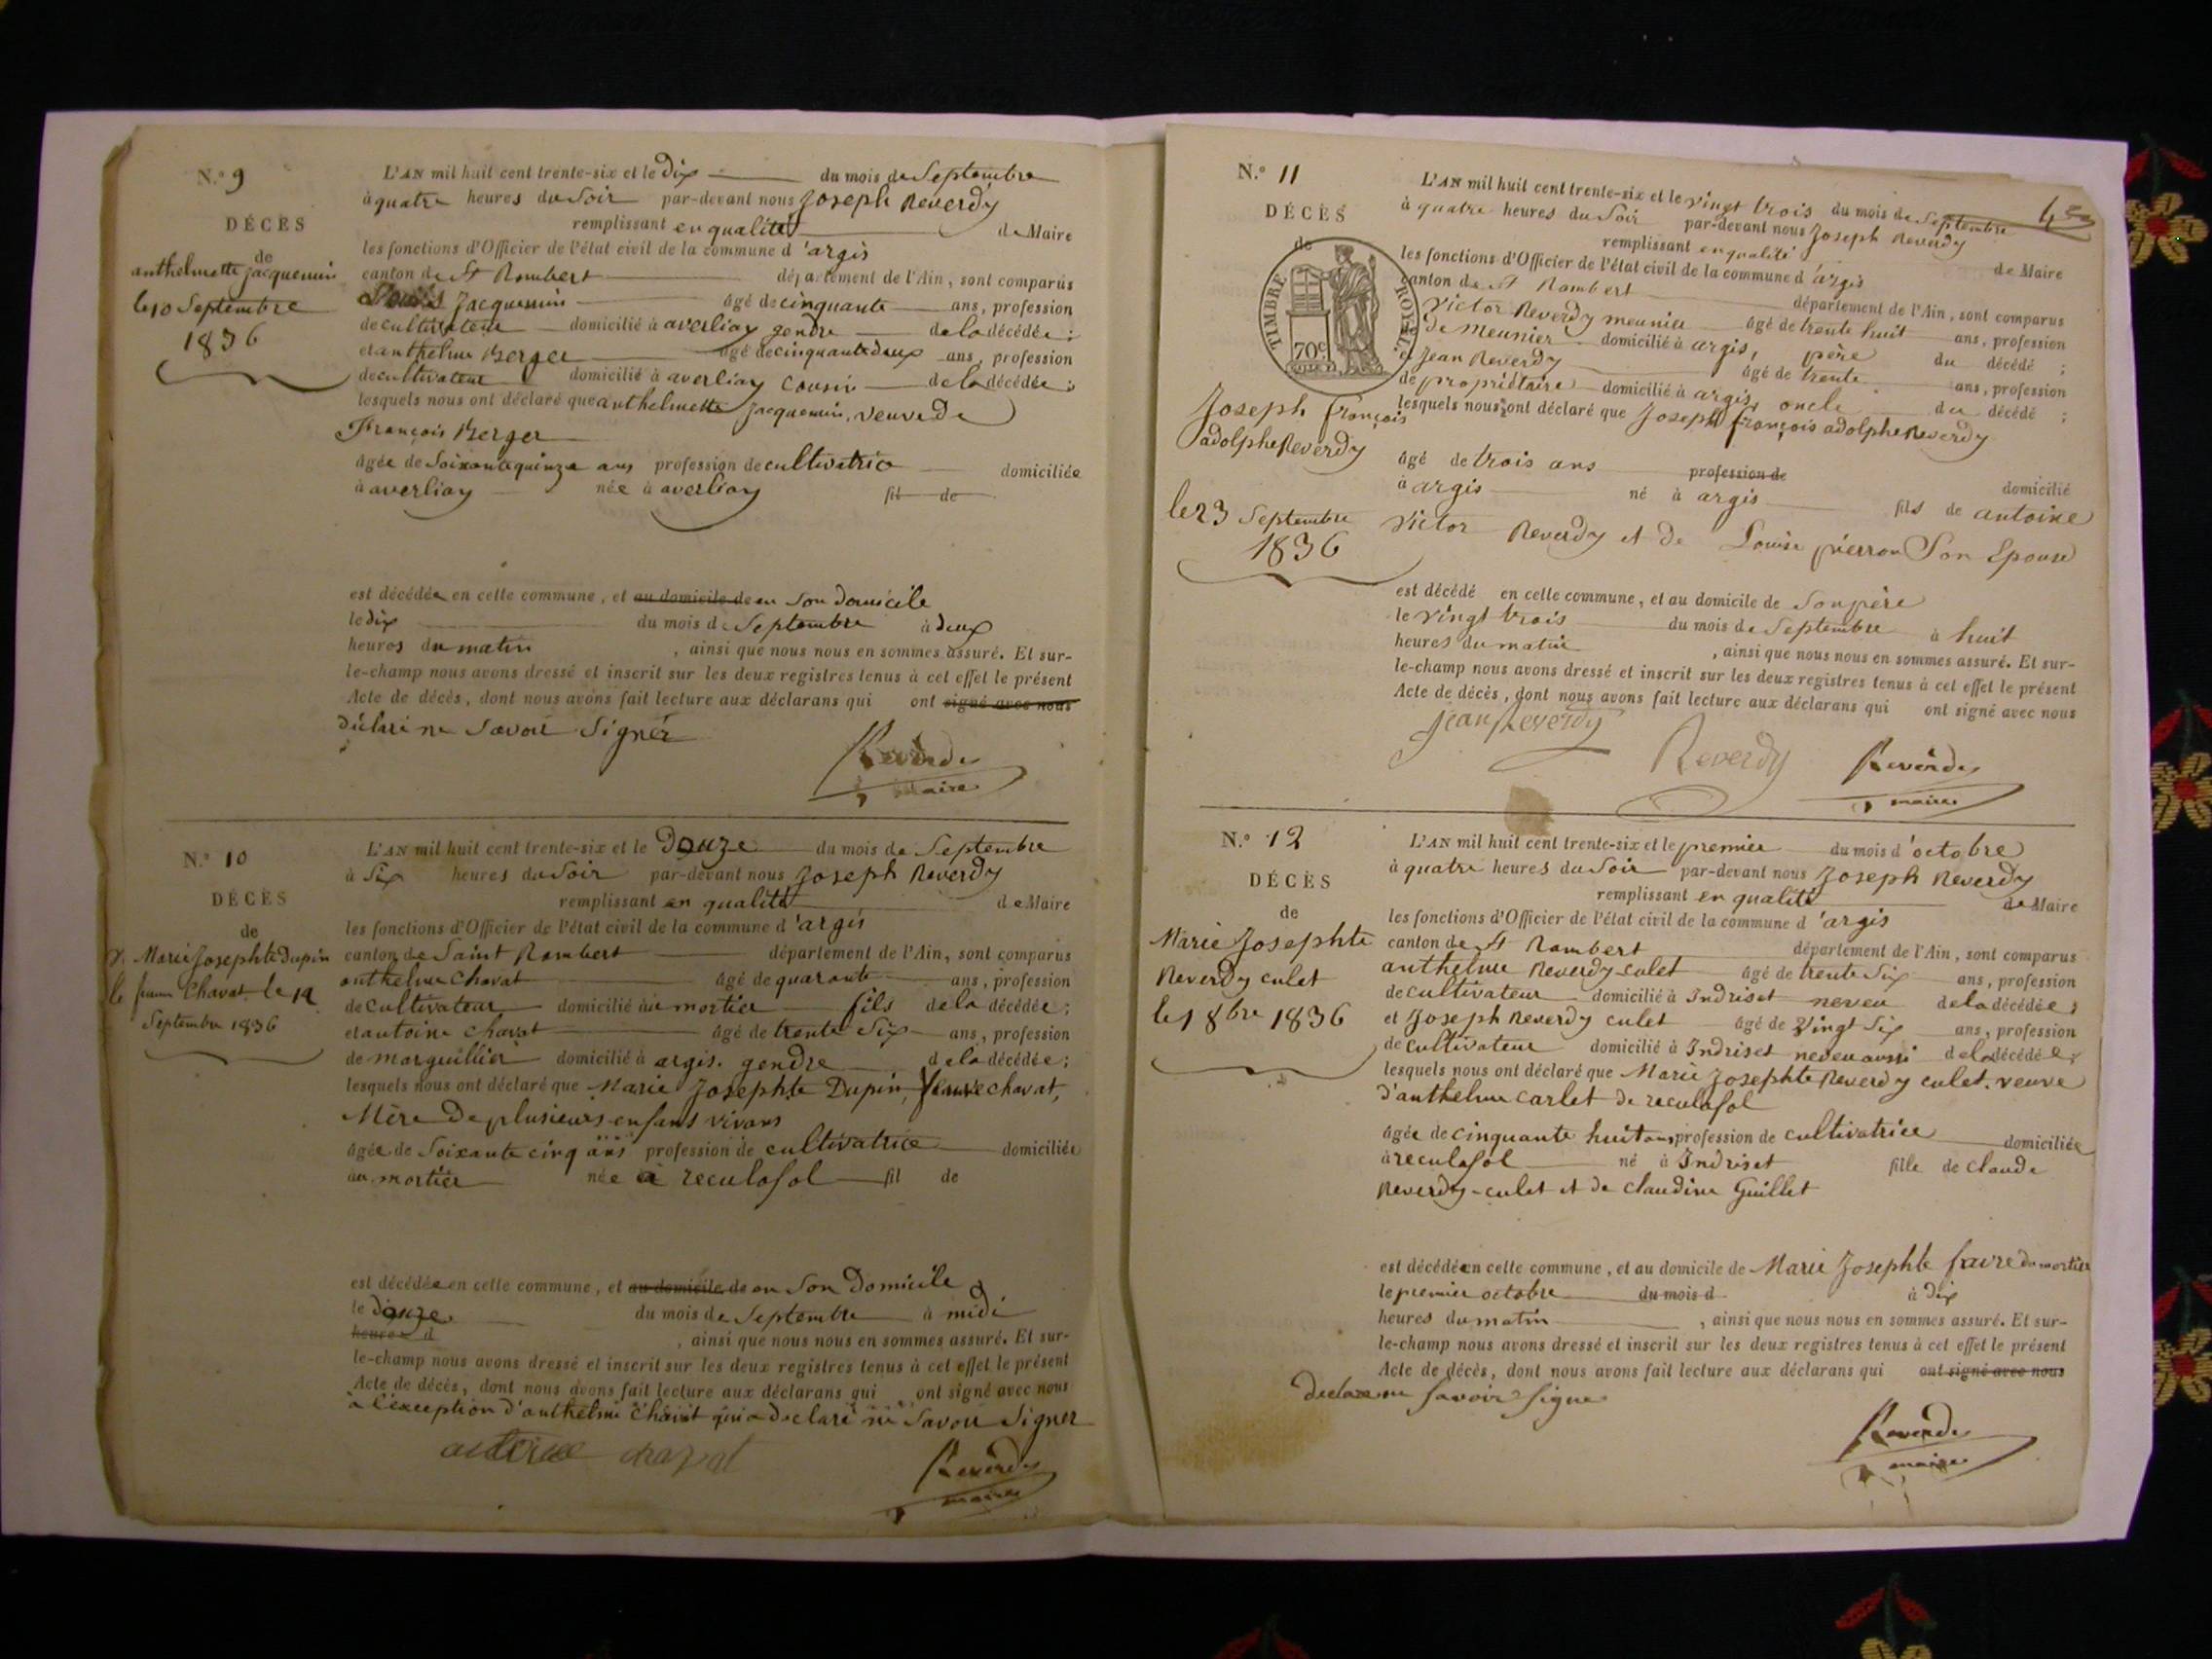 N.° 9
DÉCÈS
de
anthelmette jacquemin
le 10 Septembre
1836
L'AN mil huit cent trente-six et le dix du mois de Septembre
à quatre heures du Soir par-devant nous Joseph Reverdy
remplissant en qualité de Maire
les fonctions d'Officier de l'état civil de la commune d'argis
canton de St Rambert département de l'Ain, sont comparus
Jacquemin âgé de cinquante ans, profession
de cultivateur domicilié à averliaz gendre de la décédée ;
et anthelme Berger âgé de cinquante deux ans, profession
de cultivateur domicilié à averliaz cousin de la décédée ;
lesquels nous ont déclaré que anthelmette jacquemin, veuve de
François Berger
âgée de Soixante quinze ans profession de cultivatrice domiciliée
à averliaz née à averliaz fil de
est décédée en cette commune, et au domicile de en Son domicile
le dix du mois de Septembre à deux
heures du matin , ainsi que nous nous en sommes assuré. Et sur-
le-champ nous avons dressé et inscrit sur les deux registres tenus à cet effet le présent
Acte de décès, dont nous avons fait lecture aux déclarans qui ont signé avec nous
déclaré ne Savoir Signer
Reverdy
maire
N.° 10
DÉCÈS
de
Marie Josephte Dupin
Chavat le 12
Septembre 1836
L'AN mil huit cent trente-six et le Douze du mois de Septembre
à Six heures du Soir par-devant nous Joseph Reverdy
remplissant en qualité de Maire
les fonctions d'Officier de l'état civil de la commune d'argis
canton de Saint Rambert département de l'Ain, sont comparus
anthelme Chavat âgé de quarante ans, profession
de cultivateur domicilié au mortier fils de la décédée ;
et antoine chavat âgé de trente Six ans, profession
de marguillier domicilié à argis. gendre de la décédée ;
lesquels nous ont déclaré que Marie Josephte Dupin, chavat,
Mère De plusieurs enfans vivans
âgée de Soixante cinq ans profession de cultivatrice domiciliée
au mortier née à reculafol fil de
est décédée en cette commune, et au domicile de en Son Domicile
le douze du mois de Septembre à midi
heures d , ainsi que nous nous en sommes assuré. Et sur-
le-champ nous avons dressé et inscrit sur les deux registres tenus à cet effet le présent
Acte de décès, dont nous avons fait lecture aux déclarans qui ont signé avec nous
à l'exception d'anthelme Chavat qui a declaré ne Savoir Signer
antoine chavat
Reverdy
maire
N.° 11
DÉCÈS
de
TIMBRE ROYAL
70c
Joseph françois
adolphe Reverdy
le 23 Septembre
1836
L'AN mil huit cent trente-six et le vingt trois du mois de Septembre
à quatre heures du Soir par-devant nous Joseph Reverdy
remplissant en qualité de Maire
les fonctions d'Officier de l'état civil de la commune d'argis
canton de St Rambert département de l'Ain, sont comparus
Victor Reverdy meunier âgé de trente huit ans, profession
de Meunier domicilié à argis, père du décédé ;
et Jean Reverdy âgé de trente ans, profession
de propriétaire domicilié à argis, oncle du décédé ;
lesquels nous ont déclaré que Joseph françois adolphe Reverdy
âgé de trois ans profession de domicilié
à argis né à argis fils de antoine
Victor Reverdy et de Louise pierron Son Epouse
est décédé en cette commune, et au domicile de Son père
le vingt trois du mois de Septembre à huit
heures du matin , ainsi que nous nous en sommes assuré. Et sur-
le-champ nous avons dressé et inscrit sur les deux registres tenus à cet effet le présent
Acte de décès, dont nous avons fait lecture aux déclarans qui ont signé avec nous
jean Reverdy Reverdy Reverdy
maire
N.° 12
DÉCÈS
de
Marie Josephte
Reverdy culet
le 1 8bre 1836
L'AN mil huit cent trente-six et le premier du mois d'octobre
à quatre heures du Soir par-devant nous Joseph Reverdy
remplissant en qualité de Maire
les fonctions d'Officier de l'état civil de la commune d'argis
canton de St Rambert département de l'Ain, sont comparus
anthelme Reverdy-culet âgé de trente Six ans, profession
de cultivateur domicilié à Indriset neveu de la décédée ;
et Joseph Reverdy culet âgé de vingt Six ans, profession
de cultivateur domicilié à Indriset neveu aussi de la décédée ;
lesquels nous ont déclaré que Marie Josephte Reverdy culet, veuve
d'anthelme carlet de reculafol
âgée de cinquante huit ans profession de cultivatrice domiciliée
à reculafol né à Indriset fille de claude
Reverdy-culet et de claudine Guillet
est décédée en cette commune, et au domicile de Marie Josephte favre du mortier
le premier octobre du mois d à dix
heures du matin , ainsi que nous nous en sommes assuré. Et sur-
le-champ nous avons dressé et inscrit sur les deux registres tenus à cet effet le présent
Acte de décès, dont nous avons fait lecture aux déclarans qui ont signé avec nous
declaré ne savoir signé
Reverdy
maire